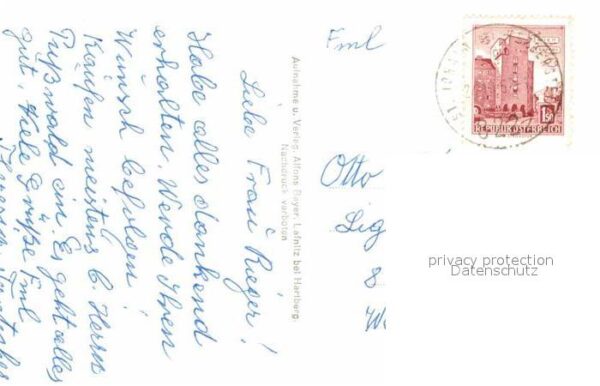 Liebe Frau Rieger!
Habe alles dankend
erhalten. Werde Ihren
Wunsch befolgen!
Kaufen meistens b. Herrn
Pußwald ein. Es geht alles
gut, Viele Grüße Fml
Aufnahme u. Verlag: Alfons Beyer, Lafnitz bei Hartberg.
Nachdruck verboten
Fml
Otto
Lig
8
We
150
REPUBLIK ÖSTERREICH
privacy protection
Datenschutz